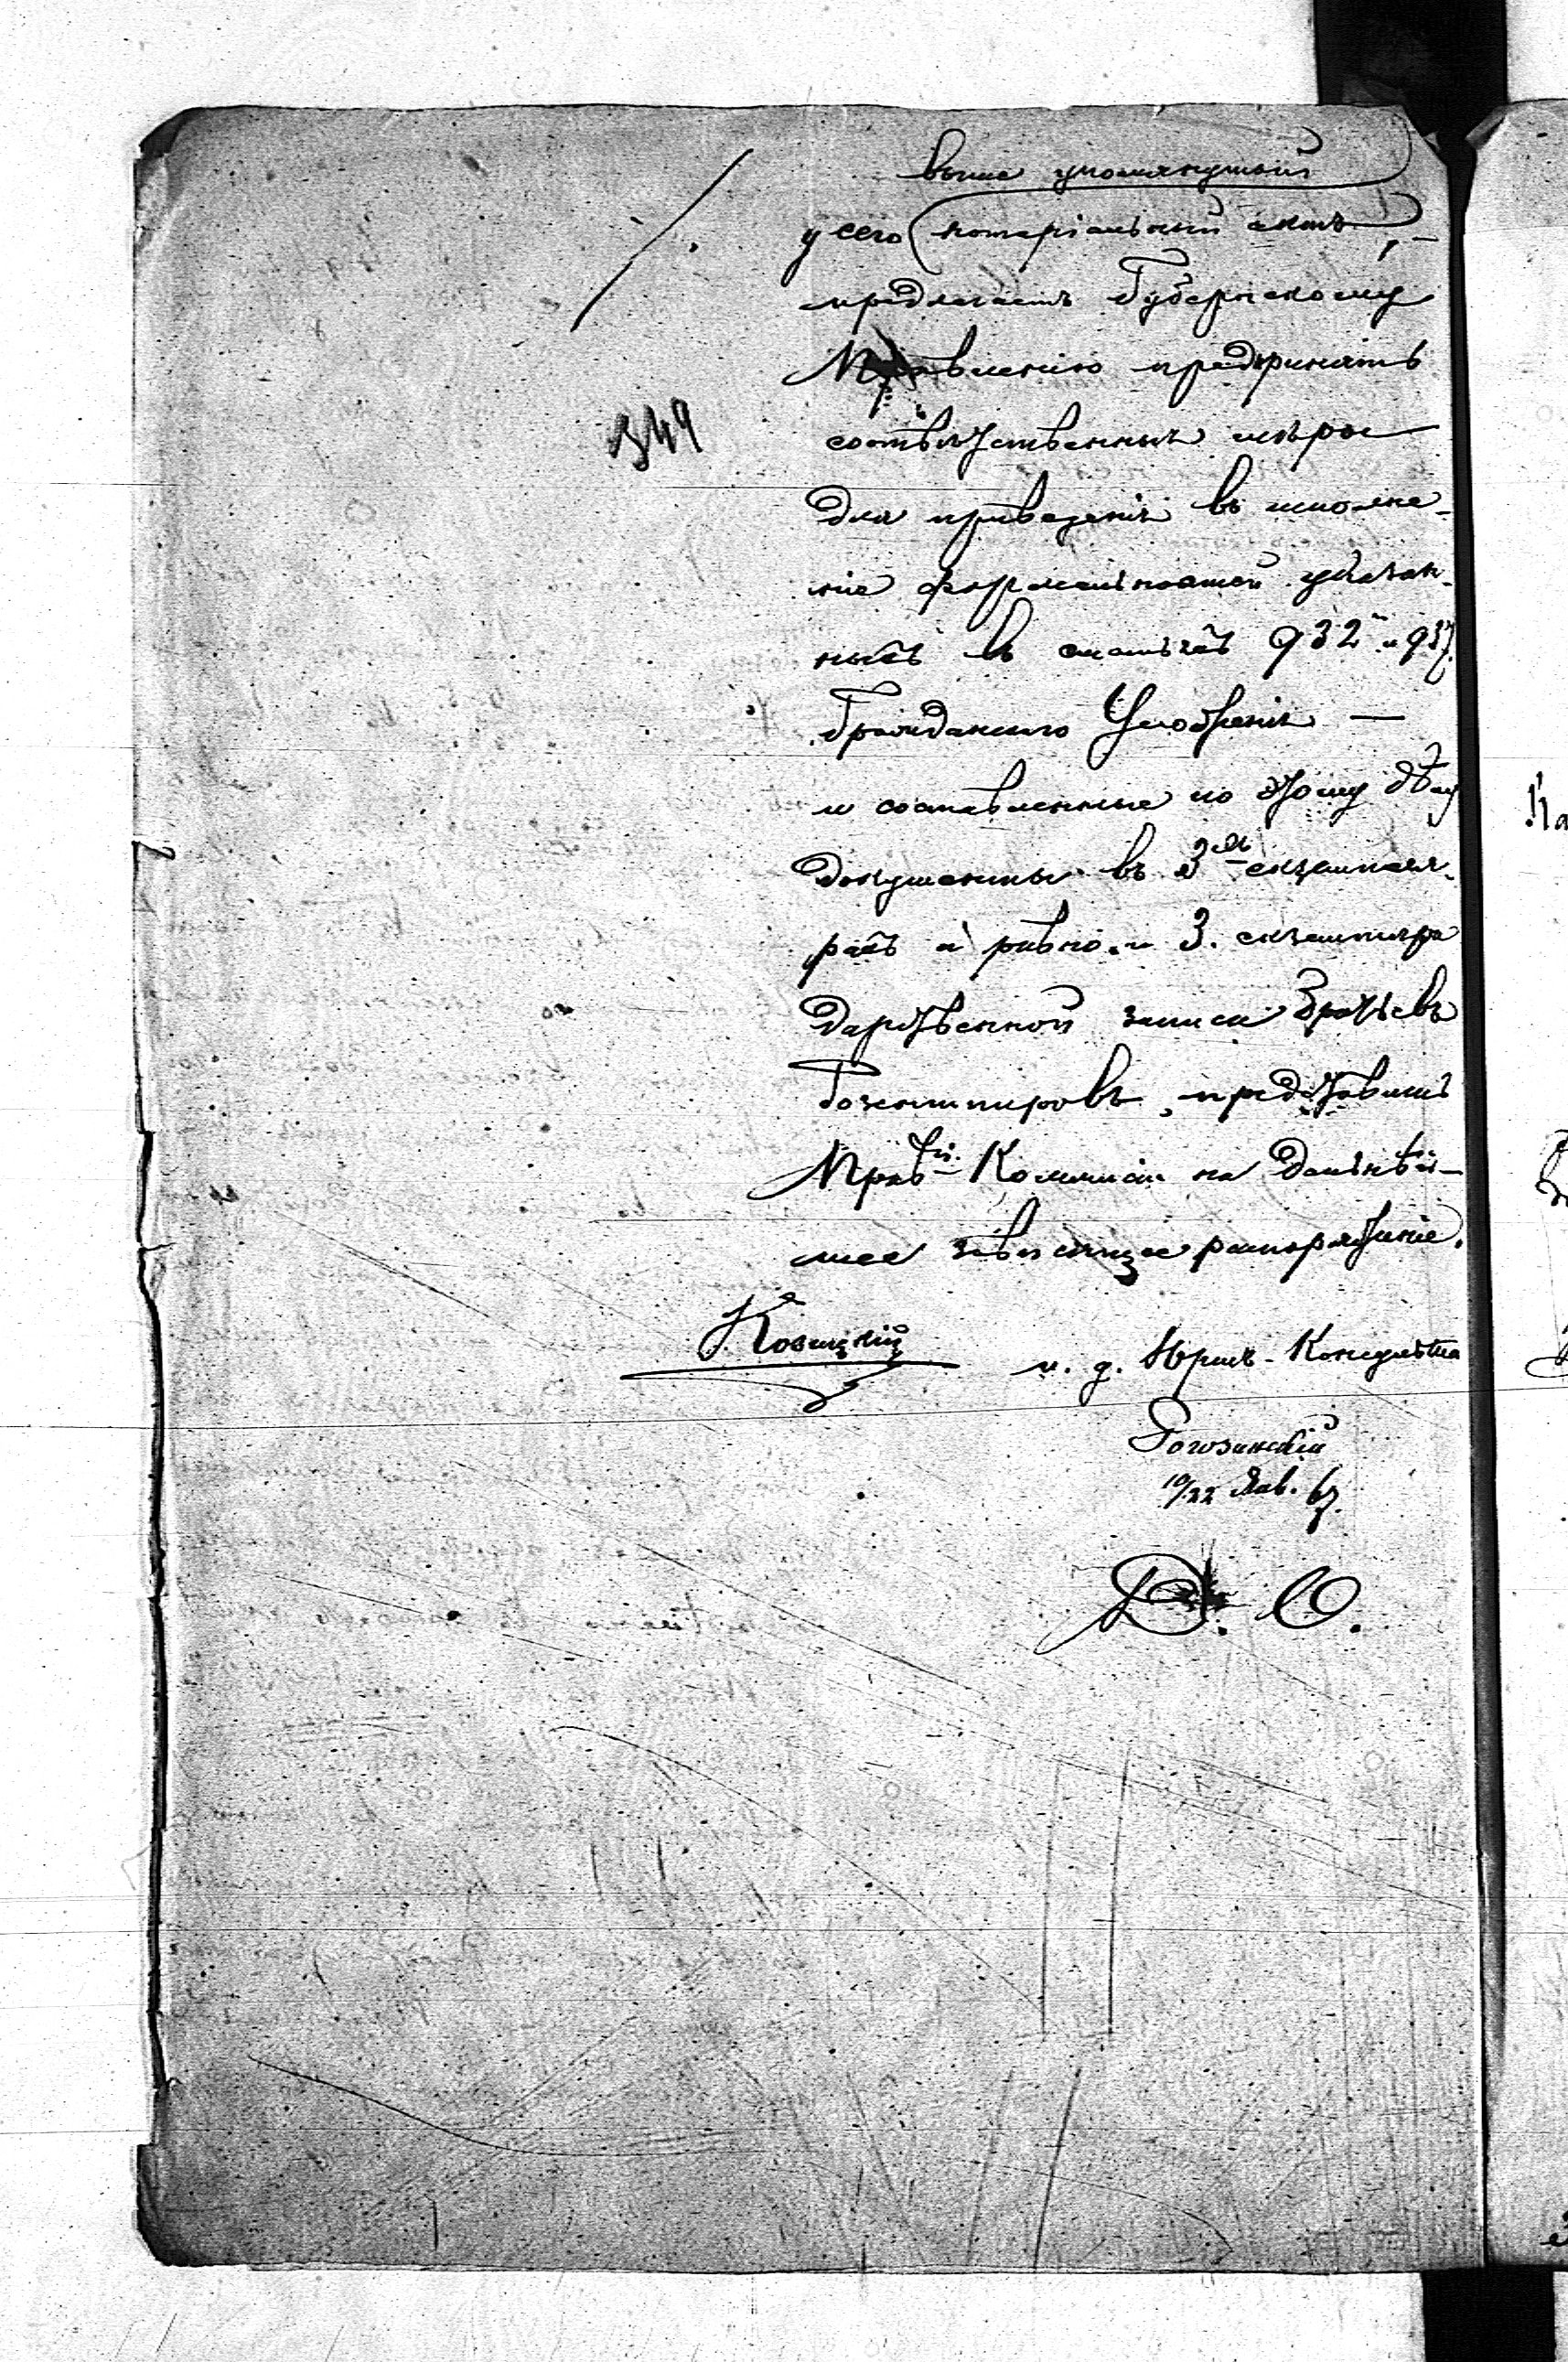 выше упомянутый
у сего нотаріальный актъ,–
предлагаетъ Губернскому
Правленію предпринять
соотвѣтственныя мѣры
для приведенія въ исполне-
ніе формальностей указан-
ныхъ въ статьяхъ 932 и 937
Гражданскаго Уложенія —
и составленные по этому дѣлу
документы въ 3хъ экземпля-
рахъ а равно и 3. экземпляра
дарственной записи братьевъ
представить
Прав. Коммисіи на дальнѣй-
шее зависящее распоряженіе.
349
и. д. Юрис-Консульта
10/22 Янв. 67.
D. O.